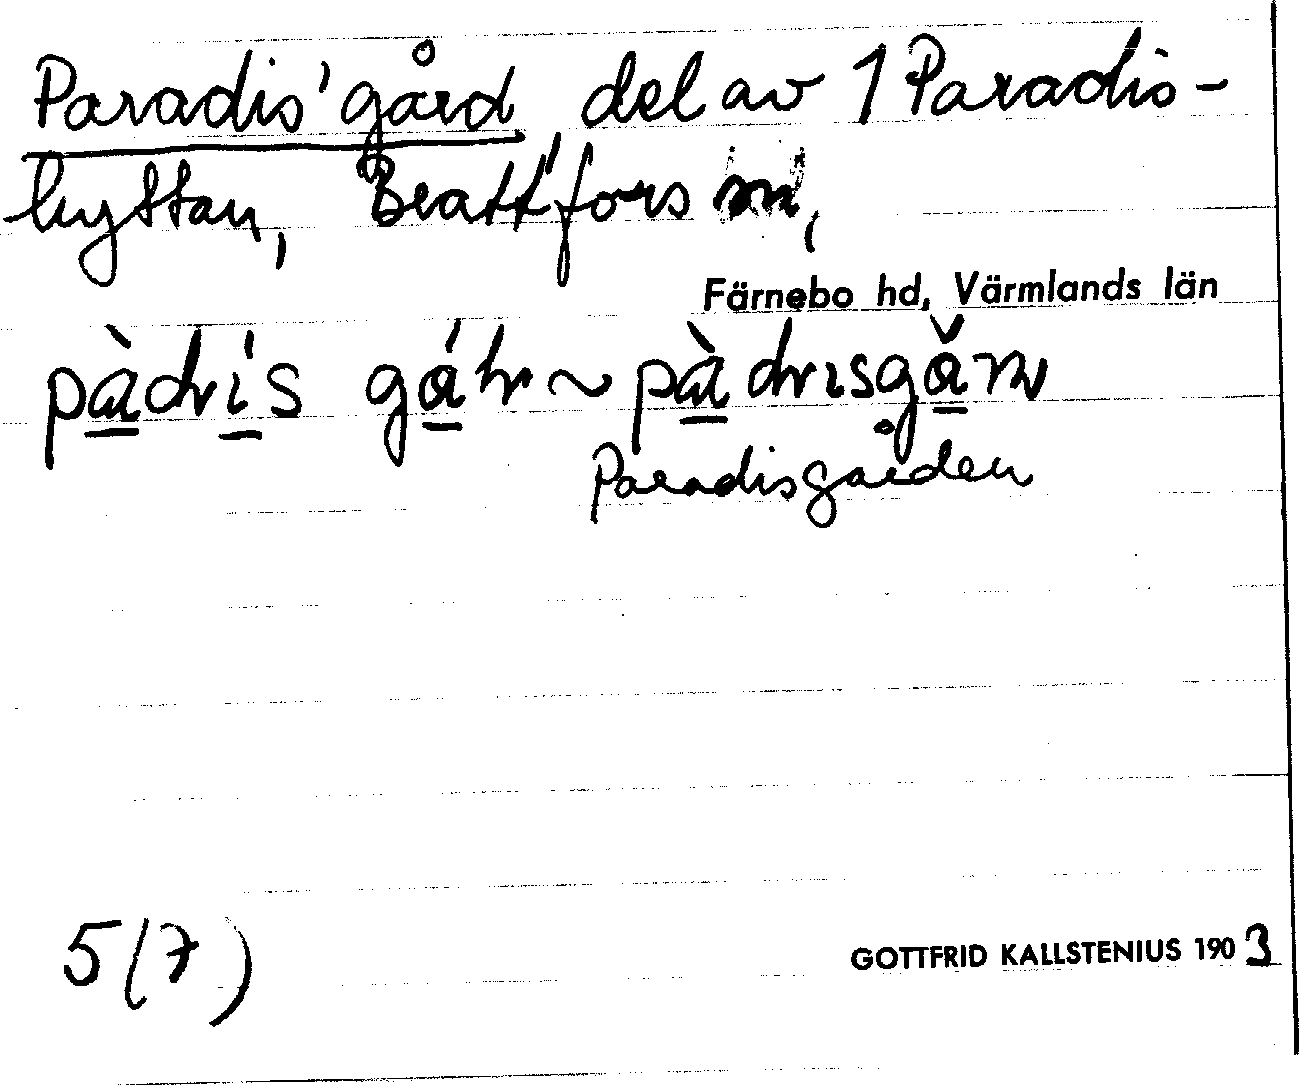 Paradis'gård del av 1 Paradis-
hyttan, Bratt'fors sn,
Färnebo hd, Värmlands län
pàdrís gáhr ~ pàdrisgǎrn
Paradisgården
5(7)
GOTTFRID KALLSTENIUS 1903